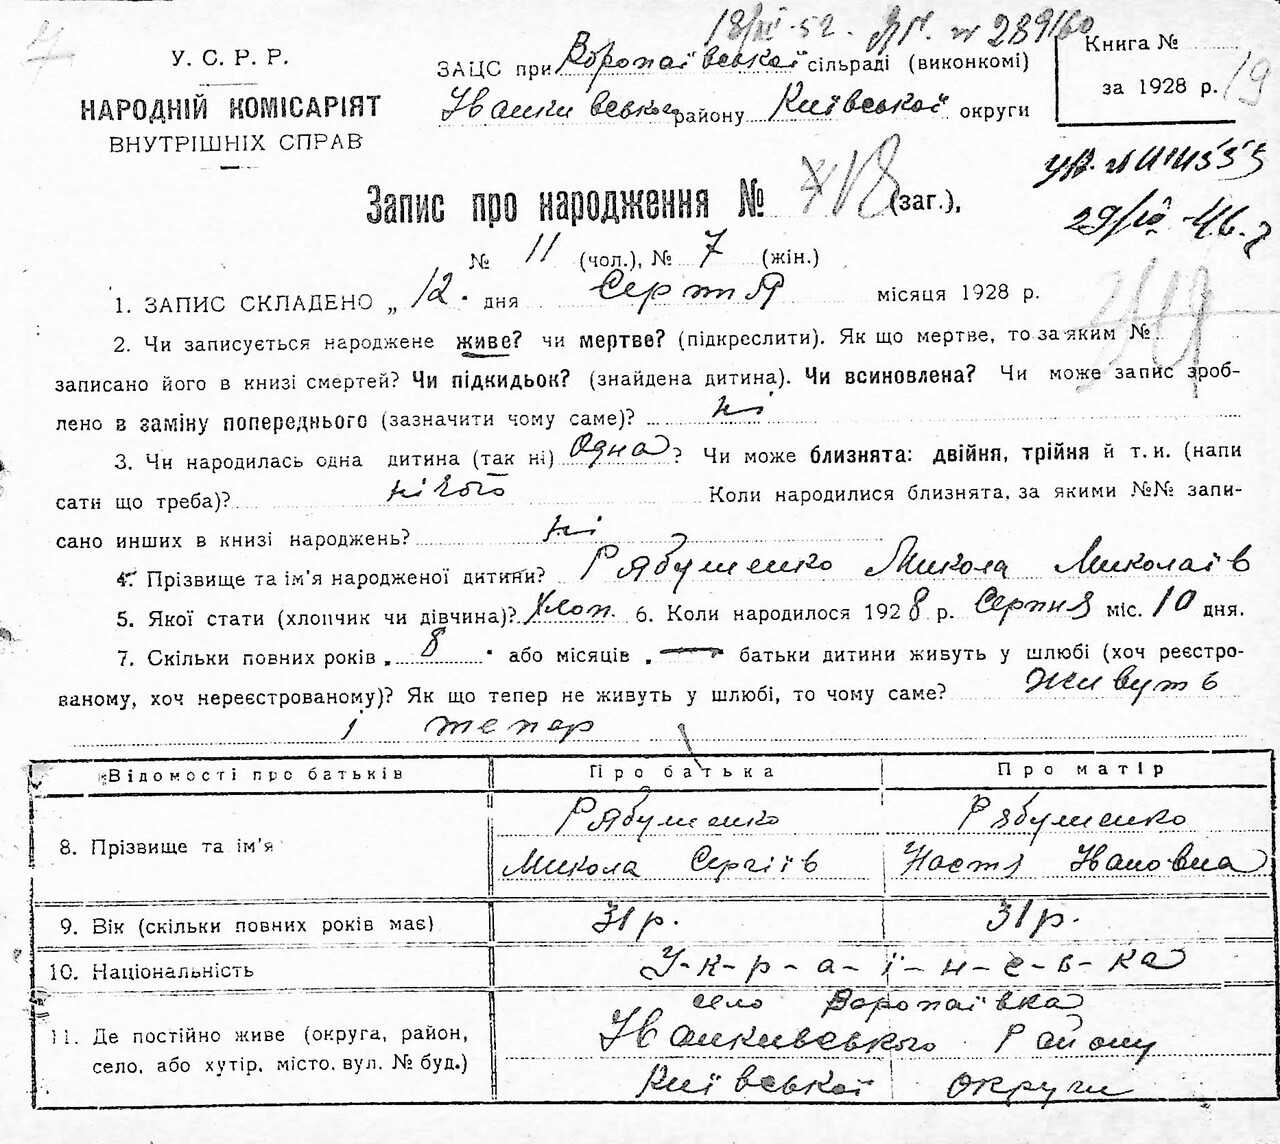 18/XI-52.
У. С. Р. Р.
НАРОДНІЙ КОМІСАРІЯТ
ВНУТРІШНІХ СПРАВ
ЗАЦС при Воропаївської сільраді (виконкомі)
Іванкивського району Київської округи
Книга №
за 1928 р. 19
29/IV-46.
Запис про народження № 18 (заг.),
№ 11 (чол.), № 7 (жін.)
1. ЗАПИС СКЛАДЕНО „ 12. дня Серпня місяця 1928 р.
2. Чи записується народжене живе? чи мертве? (підкреслити). Як що мертве, то за яким №
записано його в книзі смертей? Чи підкидьок? (знайдена дитина). Чи всиновлена? Чи може запис зроб-
лено в заміну попереднього (зазначити чому саме)? ні
3. Чи народилась одна дитина (так ні) Одна? Чи може близнята: двійня, трійня й т. и. (напи
сати що треба)? нічого Коли народилися близнята, за якими №№ запи-
сано инших в книзі народжень? ні
4. Прізвище та ім'я народженої дитини? Рябушенко Микола Миколаїв
5. Якої стати (хлопчик чи дівчина)? Хлоп. 6. Коли народилося 1928 р. Серпня міс. 10 дня.
7. Скільки повних років „ 8 " або місяців „ — батьки дитини живуть у шлюбі (хоч реєстро-
ваному, хоч нереєстрованому)? Як що тепер не живуть у шлюбі, то чому саме? живуть
і тепер
Відомості про батьків Про батька Про матір
8. Прізвище та ім'я Рябушенко Микола Сергіїв Рябушенко Настя Івановна
9. Вік (скільки повних років має) 31 р. 31 р.
10. Національність У-к-р-а-ї-н-с-ь-ка
11. Де постійно живе (округа, район, село, або хутір, місто. вул. № буд.) село Воропаївка
Іванкивського Району
Київської округи